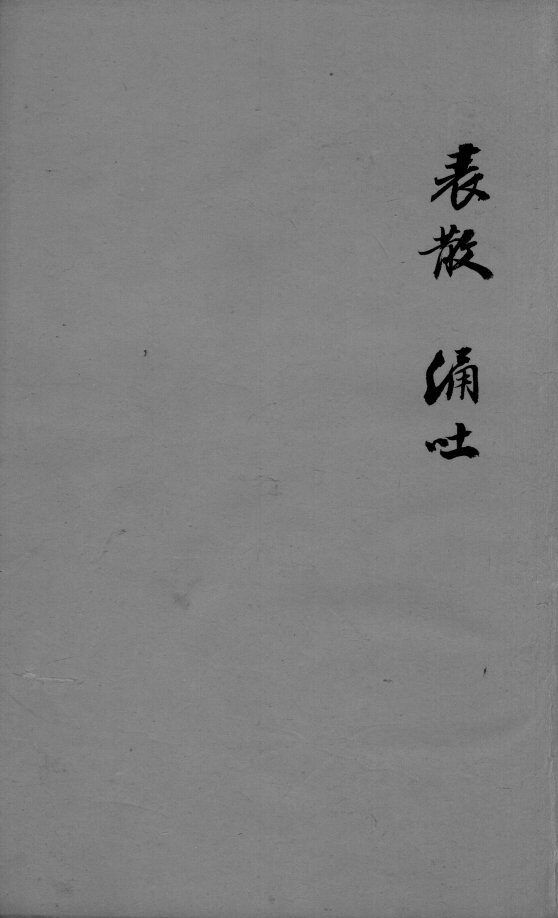 表散　涌吐